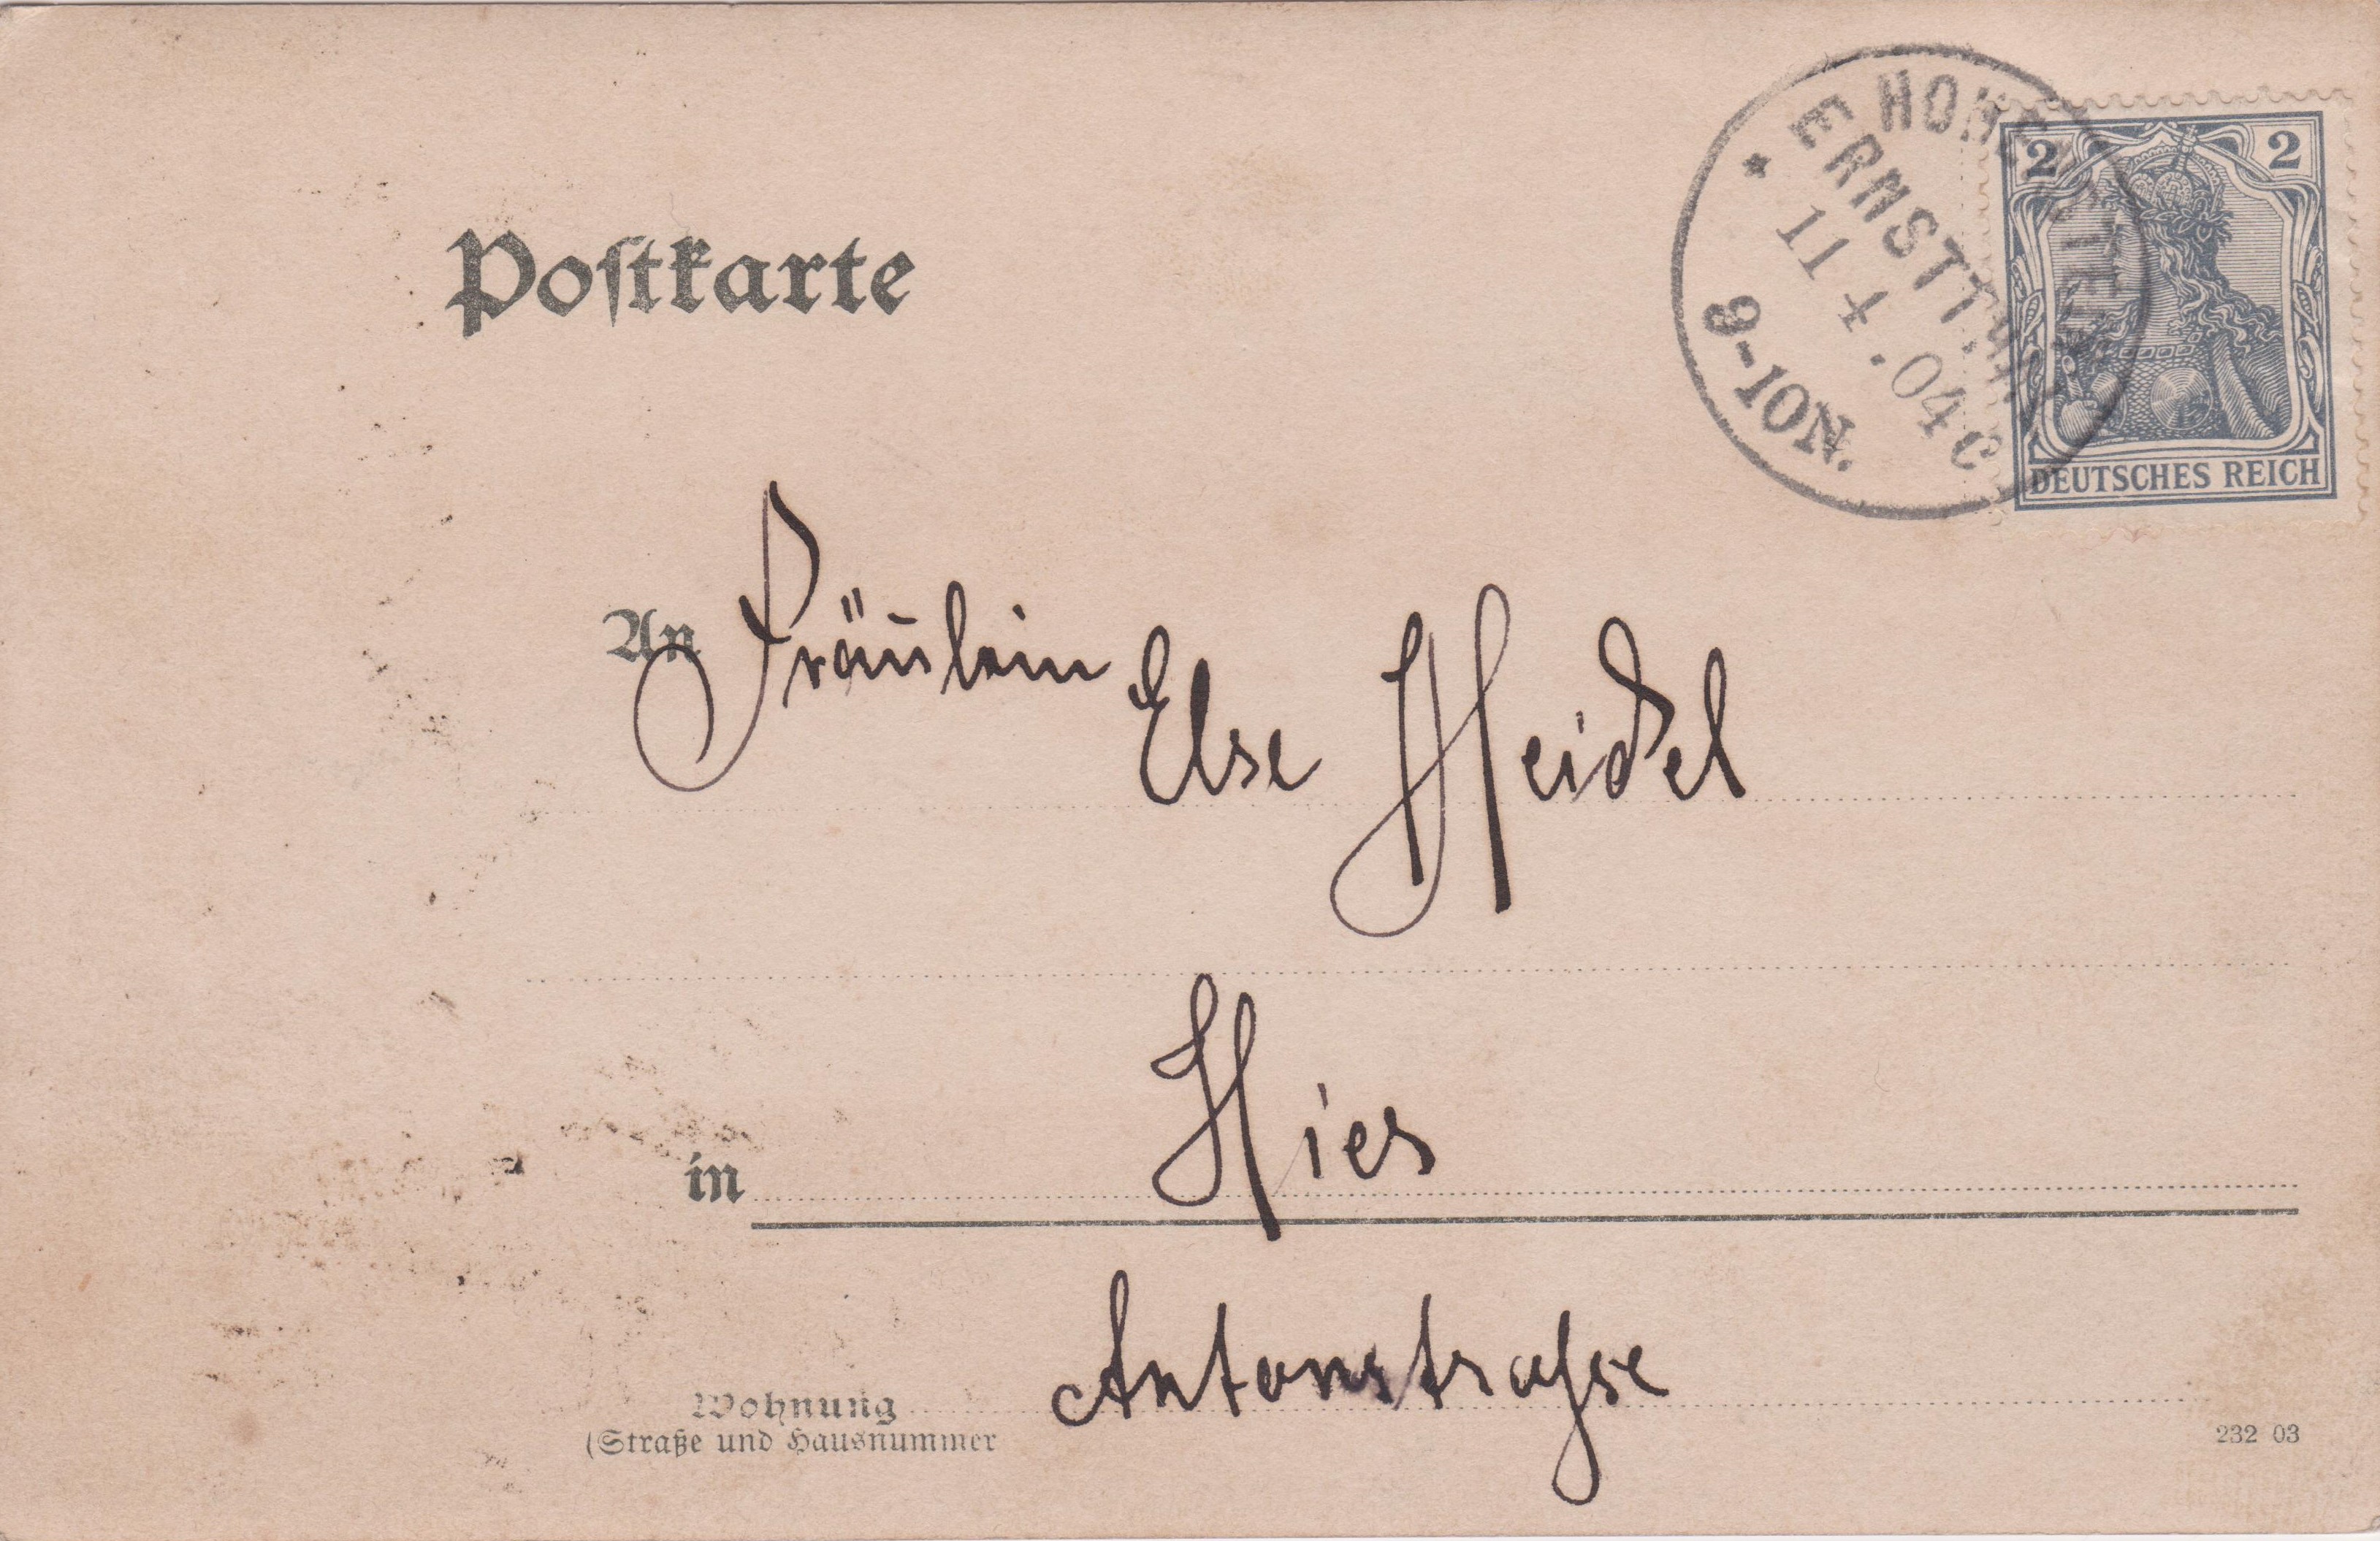 HOHENSTEIN
* ERNSTTHAL
11 4.04 c
9-10N.
2 2
DEUTSCHES REICH
Postkarte
An Fräulein
Else Heidel
in Hier
Wohnung Antonstraße
(Straße und Hausnummer
232 03